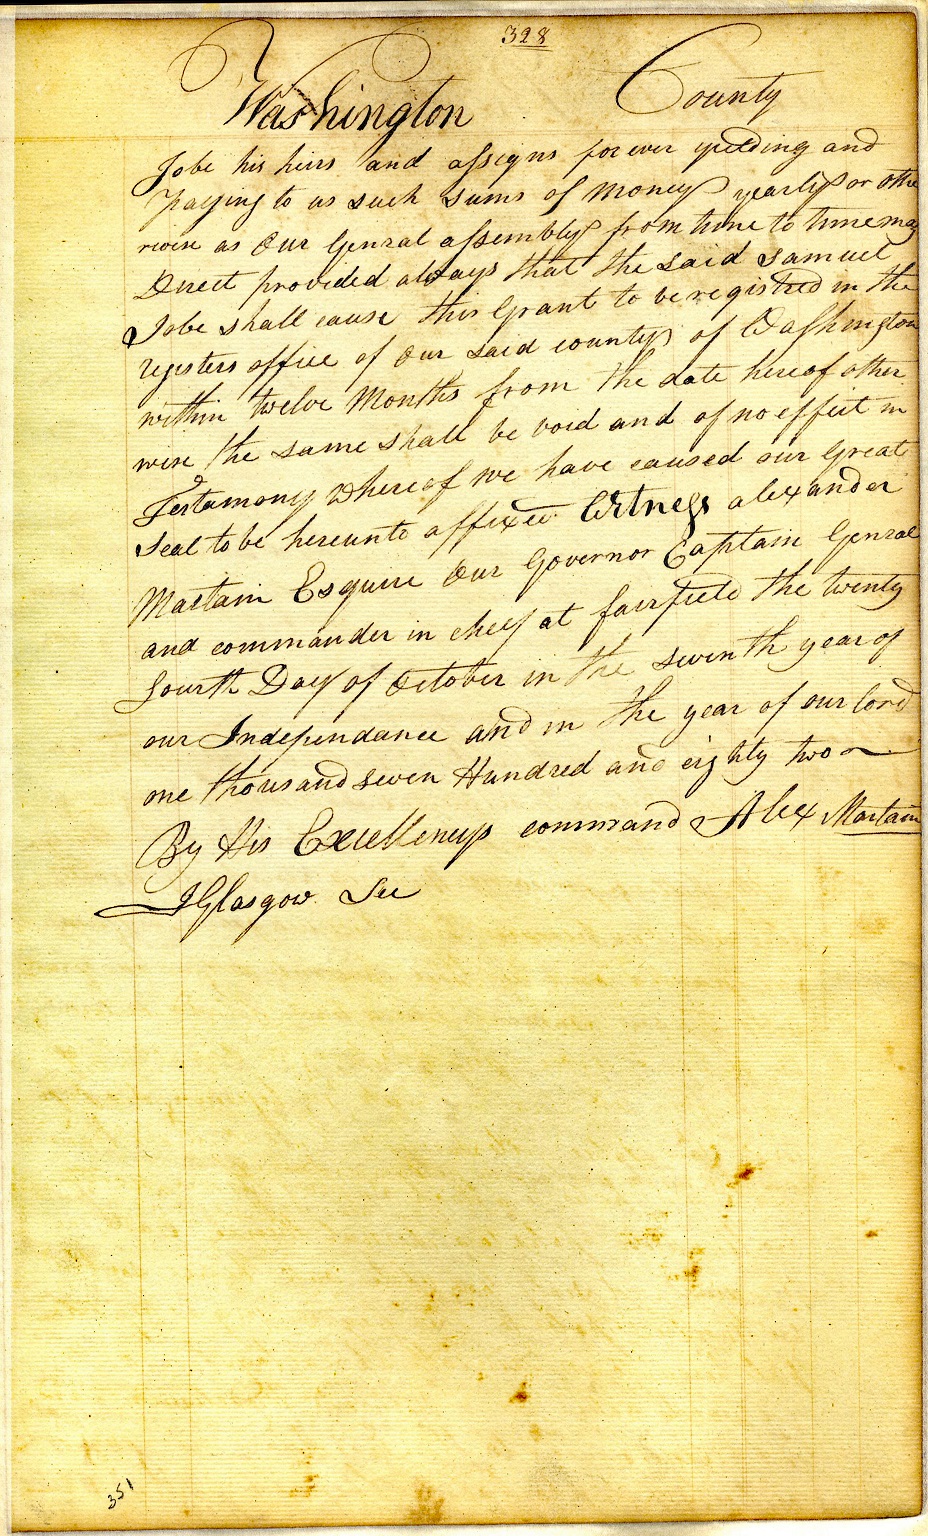 328
Washington County
Jobe his heirs and assigns for ever yielding and
paying to us such sums of money yearly or othe
rwise as Our Genral assembly from time to time may
Direct provided always that the said Samuel
Jobe shall cause this Grant to be registred in the
registers office of our said county of Washington
within twelve Months from the date hereof other
wise the same shall be void and of no effect in
Testamony whereof we have caused our Great
Seal to be hereunto affixed Witness alexander
Martain Esquire Our Governor Captain Genral
and commander in cheif at fairfield the twenty
fourth Day of October in the seventh year of
our Independance and in the year of our lord
one thousand seven Hundred and eighty two
By His Excellency command Alex Martain
J Glasgow Sec
351